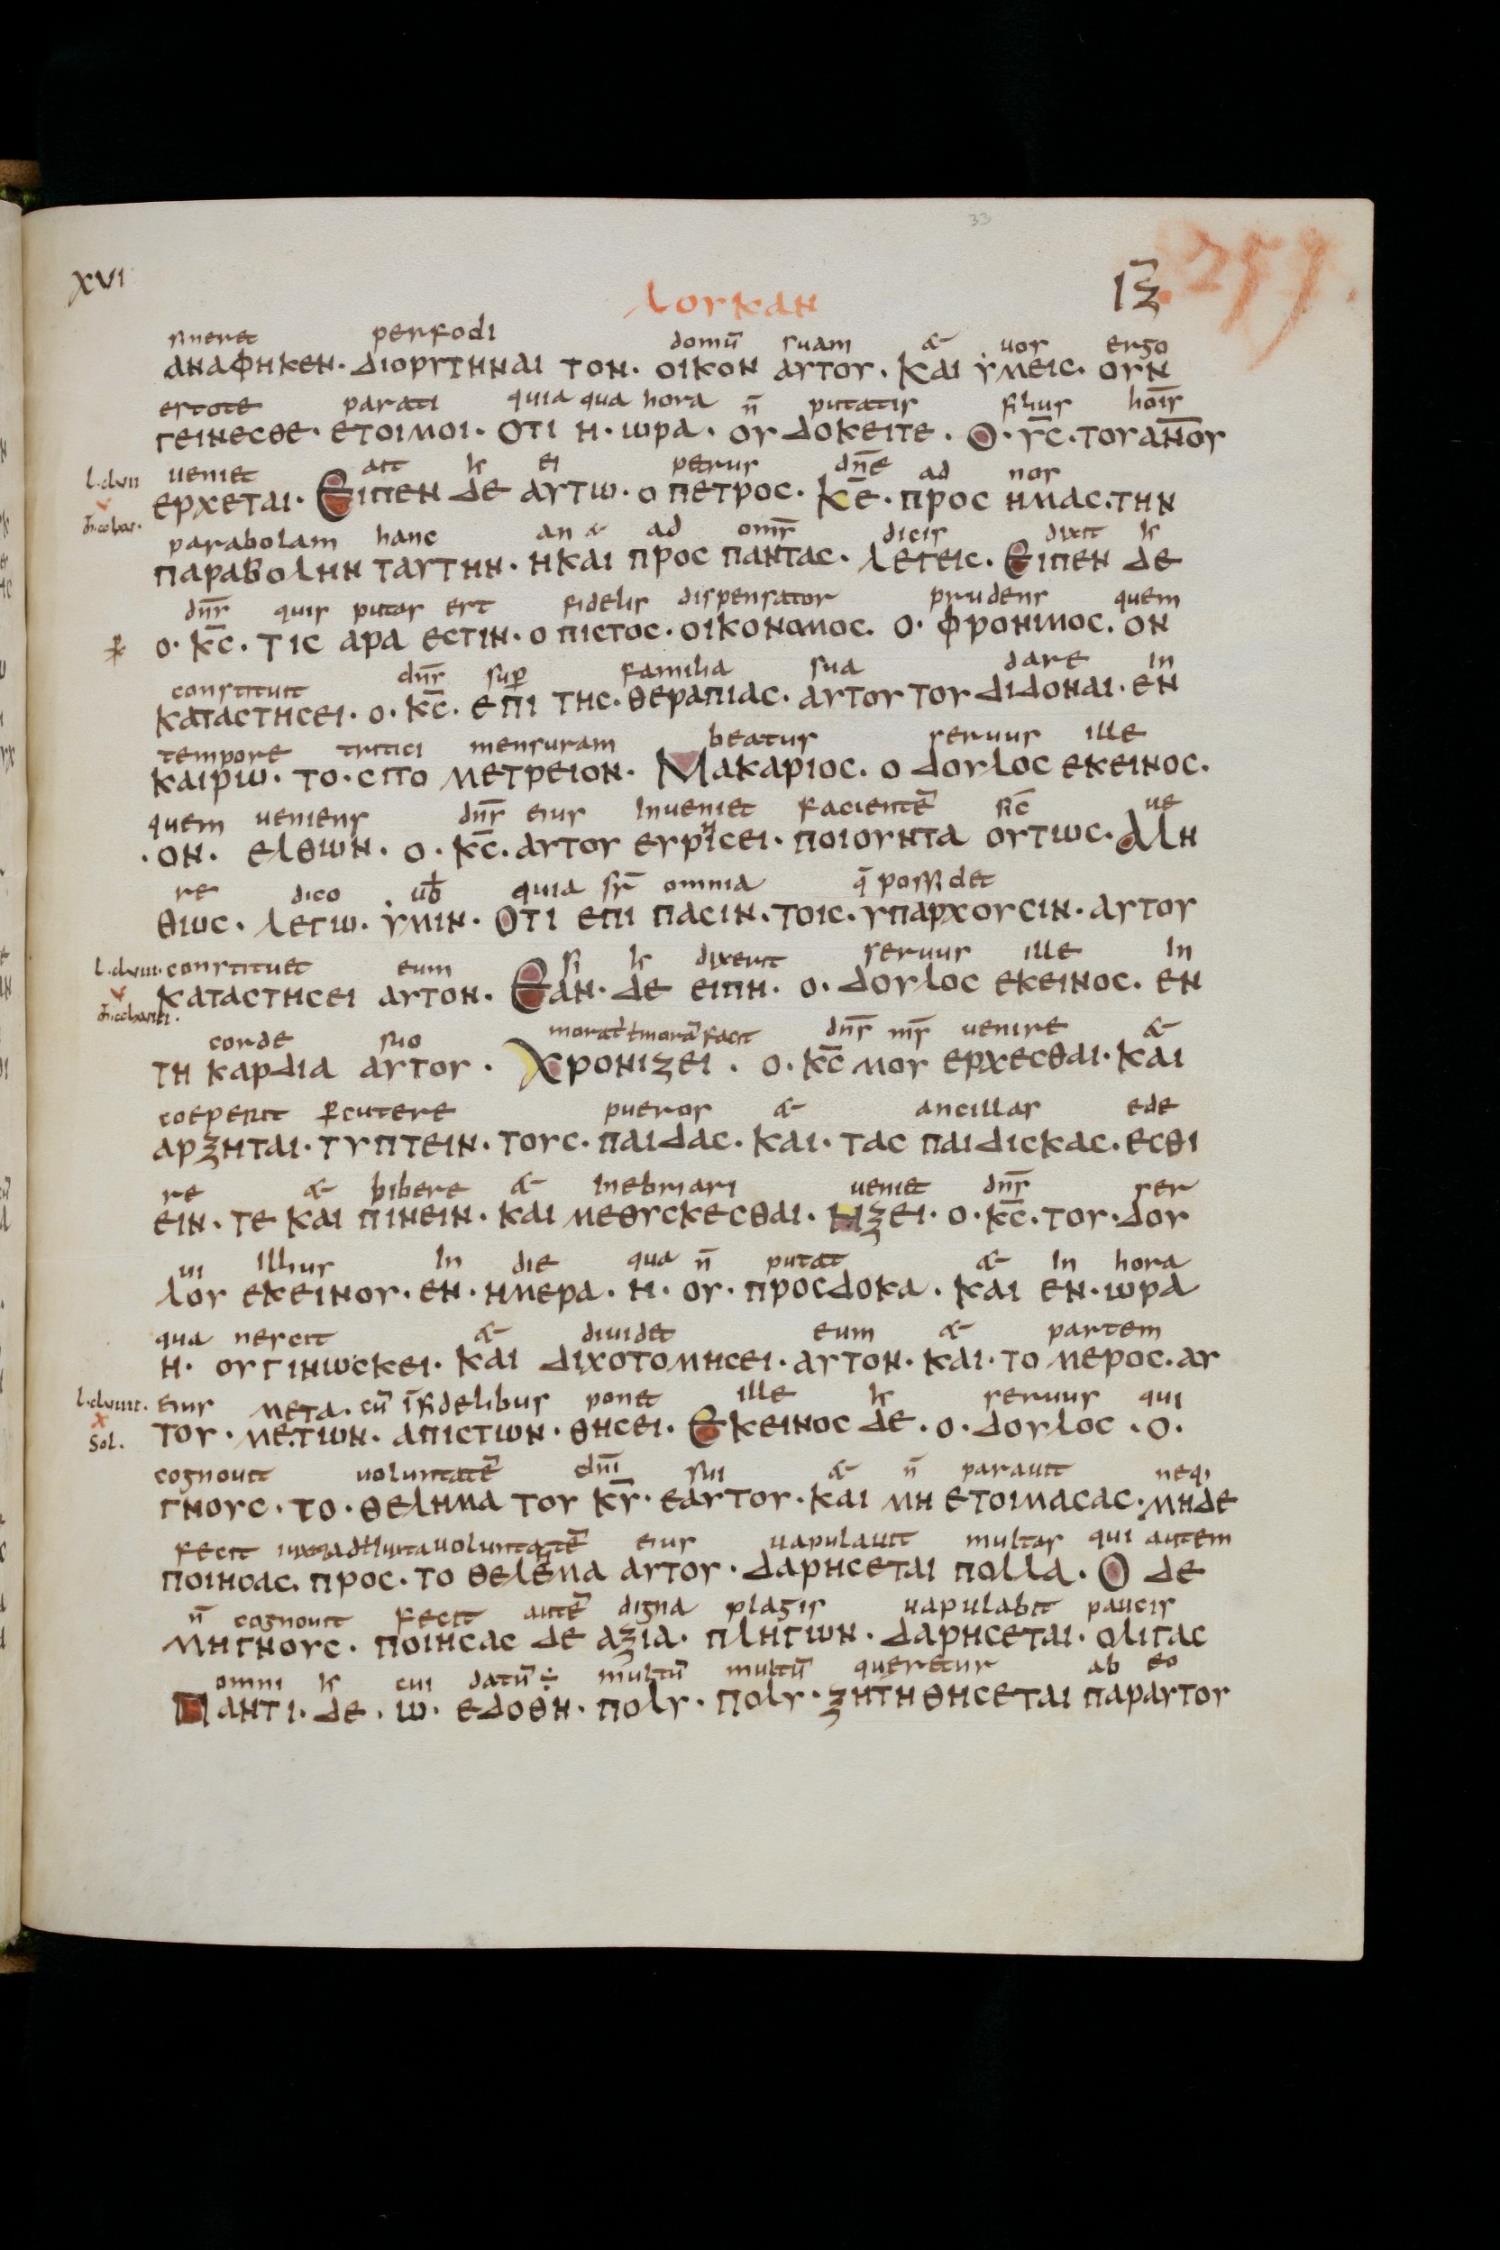 33
XVI
ΛΟΥΚΑΝ
ΙΖ
257.
sineret perfodi domū suam & uos ergo
ΑΝΑΦΗΚΕΝ· ΔΙΟΡΥΓΗΝΑΙ ΤΟΝ· ΟΙΚΟΝ ΑΥΤΟΥ· ΚΑΙ ΥΜΕΙΣ· ΟΥΝ
estote parati quia qua hora n̄ putatis filius hōis
ΓΕΙΝΕCΘΕ· ΕΤΟΙΜΟΙ· ΟΤΙ Η· ΩΡΑ· ΟΥ ΔΟΚΕΙΤΕ· Ο· Υ̅C̅· ΤΟΥ ΑΝ̅ΟΥ
ueniet ait h̵ ei petrus dn̄e ad nos
ΕΡΧΕΤΑΙ· ΕΙΠΕΝ ΔΕ ΑΥΤΩ· Ο ΠΕΤΡΟC· Κ̅Ε̅· ΠΡΟC ΗΜΑC· ΤΗΝ
parabolam hanc an & ad omīs dicis dixit h̵
ΠΑΡΑΒΟΛΗΝ ΤΑΥΤΗΝ· Η ΚΑΙ ΠΡΟC ΠΑΝΤΑC· ΛΕΓΕΙC· ΕΙΠΕΝ ΔΕ
dn̄s quis putas est fidelis dispensator prudens quem
Ο· Κ̅C̅· ΤΙC ΑΡΑ ΕCΤΙΝ· Ο ΠΙCΤΟC· ΟΙΚΟΝΟΜΟC· Ο· ΦΡΟΝΙΜΟC· ΟΝ
constituit dn̄s sup̄ familia sua dare in
ΚΑΤΑCΤΗCΕΙ· Ο· Κ̅C̅· ΕΠΙ ΤΗC· ΘΕΡΑΠΙΑC· ΑΥΤΟΥ ΤΟΥ ΔΙΔΟΝΑΙ· ΕΝ
tempore tritici mensuram beatus seruus ille
ΚΑΙΡΩ· ΤΟ· CΙΤΟ ΜΕΤΡΕΙΟΝ· ΜΑΚΑΡΙΟC· Ο ΔΟΥΛΟC ΕΚΕΙΝΟC·
quem ueniens dn̄s eius inueniet facientē sīc ue
·ΟΝ· ΕΛΘΩΝ· Ο· Κ̅C̅· ΑΥΤΟΥ ΕΥΡΗCΕΙ· ΠΟΙΟΥΝΤΑ ΟΥΤΩC· ΑΛΗ
re dico ub̵ quia sr̄ omnia q̄ possidet
ΘΩC· ΛΕΓΩ· ΥΜΙΝ· ΟΤΙ ΕΠΙ ΠΑCΙΝ· ΤΟΙC· ΥΠΑΡΧΟΥCΙΝ· ΑΥΤΟΥ
constituet eum si h̵ dixerit seruus ille in
ΚΑΤΑCΤΗCΕΙ ΑΥΤΟΝ· ΕΑΝ· ΔΕ ΕΙΠΗ· Ο· ΔΟΥΛΟC ΕΚΕΙΝΟC· ΕΝ
corde suo dn̄s m̄s uenire &
ΤΗ ΚΑΡΔΙΑ ΑΥΤΟΥ· ΧΡΟΝΙΖΕΙ· Ο· Κ̅C̅ ΜΟΥ ΕΡΧΕCΘΑΙ· ΚΑΙ
coeperit p̄cutere pueros & ancillas ede
ΑΡΞΗΤΑΙ· ΤΥΠΤΕΙΝ· ΤΟΥC· ΠΑΙΔΑC· ΚΑΙ· ΤΑC ΠΑΙΔΙCΚΑC· ΕCΘΙ
re & bibere & inebriari ueniet dn̄s ser
ΕΙΝ· ΤΕ ΚΑΙ ΠΙΝΕΙΝ· ΚΑΙ ΜΕΘΥCΚΕCΘΑΙ· ΗΞΕΙ· Ο· Κ̅C̅· ΤΟΥ· ΔΟΥ
ui illius in die qua n̄ putat & in hora
ΛΟΥ ΕΚΕΙΝΟΥ· ΕΝ· ΗΜΕΡΑ· Η· ΟΥ· ΠΡΟCΔΟΚΑ· ΚΑΙ ΕΝ· ΩΡΑ
qua nescit & diuidet eum & partem
Η· ΟΥ ΓΙΝΩCΚΕΙ· ΚΑΙ ΔΙΧΟΤΟΜΗCΕΙ· ΑΥΤΟΝ· ΚΑΙ· ΤΟ ΜΕΡΟC· ΑΥ
eius ΜΕΤΑ· cū īfidelibus ponet ille h̵ seruus qui
ΤΟΥ· ΜΕ·ΤΩΝ· ΑΠΙCΤΩΝ· ΘΗCΕΙ· ΕΚΕΙΝΟC ΔΕ· Ο· ΔΟΥΛΟC· Ο·
Sol.
cognouit uoluntatē dn̄i sui & n̄ parauit neq;
ΓΝΟΥC· ΤΟ· ΘΕΛΗΜΑ ΤΟΥ Κ̅Υ̅· ΕΑΥΤΟΥ· ΚΑΙ ΜΗ ΕΤΟΙΜΑCΑC· ΜΗΔΕ
fecit uoluntatē eius uapulauit multas qui autem
ΠΟΙΗCΑC· ΠΡΟC· ΤΟ ΘΕΛΕΜΑ ΑΥΤΟΥ· ΔΑΡΗCΕΤΑΙ ΠΟΛΛΑ· Ο ΔΕ
n̄ cognouit fecit autē digna plagis uapulabit paucis
ΜΗ ΓΝΟΥC· ΠΟΙΗCΑC ΔΕ ΑΞΙΑ· ΠΛΗΓΩΝ· ΔΑΡΗCΕΤΑΙ· ΟΛΙΓΑC
omni h̵ cui datū ÷ multū multū queretur ab eo
ΠΑΝΤΙ· ΔΕ· Ω· ΕΔΟΘΗ· ΠΟΛΥ· ΠΟΛΥ· ΖΗΤΗΘΗCΕΤΑΙ ΠΑΡΑΥΤΟΥ